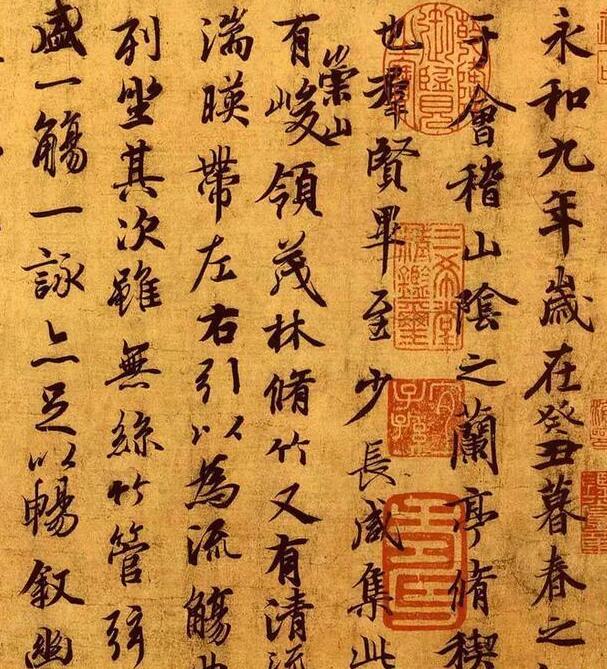 永和九年歲在癸丑暮春之
于會稽山陰之蘭亭脩稧
也羣賢畢至少長咸集此
有崇山峻領茂林脩竹又有清流
湍暎帶左右引以為流觴
列坐其次雖無絲竹管弦
盛一觴一詠亦足以暢敘幽
三希堂精鑑璽
宜子孫